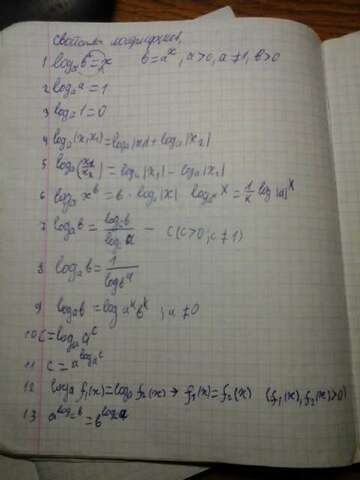 Свойства логарифмов
1 log_a b = x   b = a^x, a>0, a≠1, b>0
2 log_a a = 1
3 log_a 1 = 0
4 log_a (x₁ x₂) = log_a |x₁| + log_a |x₂|
5 log_a (x₁/x₂) = log_a |x₁| - log_a |x₂|
6 log_a x^b = b · log_a |x|
7 log_a b = log_c b / log_c a - c (c>0, c≠1)
8 log_a b = 1 / log_b a
9 log_a b = log a^k b^k
10 c = log_a a^c
11 c = a^(log_a c)
12 log_a f₁(x) = log_a f₂(x) → f₁(x) = f₂(x) (f₁(x), f₂(x) > 0)
13 a^(log_c b) = b^(log_c a)